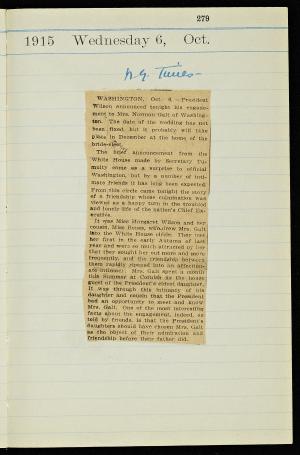 279
1915 Wednesday 6, Oct.
N.Y. Times-
WASHINGTON, Oct. 6.—President
Wilson announced tonight his engage-
ment to Mrs. Norman Galt of Washing-
ton. The date of the wedding has not
been fixed, but it probably will take
place in December at the home of the
bride-elect.
The brief announcement from the
White House made by Secretary Tu-
multy came as a surprise to official
Washington, but by a number of inti-
mate friends it has long been expected.
From this circle came tonight the story
of a friendship whose culmination was
viewed as a happy turn in the troubled
and lonely life of the nation's Chief Ex-
ecutive.
It was Miss Margaret Wilson and her
cousin, Miss Bones, who drew Mrs. Galt
into the White House circle. They met
her first in the early Autumn of last
year and were so much attracted by her
that they sought her out more and more
frequently, and the friendship between
them rapidly ripened into an affection-
ate intimacy. Mrs. Galt spent a month
this Summer at Cornish as the house
guest of the President's eldest daughter.
It was through this intimacy of his
daughter and cousin that the President
had an opportunity to meet and know
Mrs. Galt. One of the most interesting
facts about the engagement, indeed, as
told by friends, is that the President's
daughters should have chosen Mrs. Galt
as the object of their admiration and
friendship before their father did.